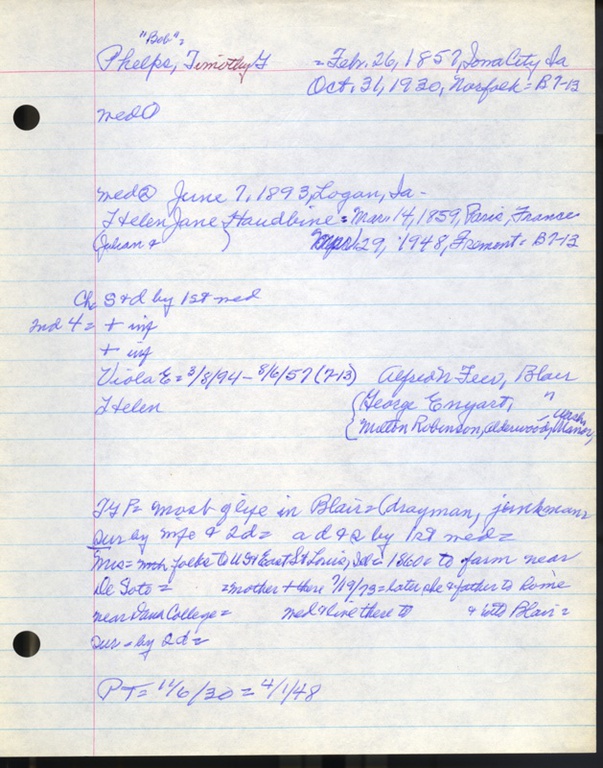 "Bob"=
Phelps, Timothy G = Feb. 26, 1857, Iowa City, Ia
Oct. 31, 1930, Norfolk = B7-13
med ①
med ② June 7, 1893, Logan, Ia-
Helen Jane Haudbine = Mar. 14, 1859, Paris, France
(Julian & ) Apr 29, 1948, Fremont = B7-13
Ch S & d by 1st med
2nd 4 = + inf
+ inf
Viola E = 3/8/94 - 8/6/57 (7-13) Alfred N Feer, Blair
Helen { George Enyart, "
{ Milton Robinson, Alderwood Manor, Wash.
TGP = most of life in Blair = (drayman, junkman)
sur by wife & 2d = a d & s by 1st med =
Mrs = with folks to US & East St Louis, Ill = 1860s to farm near
De Soto = = mother + there 7/19/73 = later she & father to home
near Dana College = med & live there to & into Blair =
sur - by 2d =
PT = 11/6/30 = 4/1/48